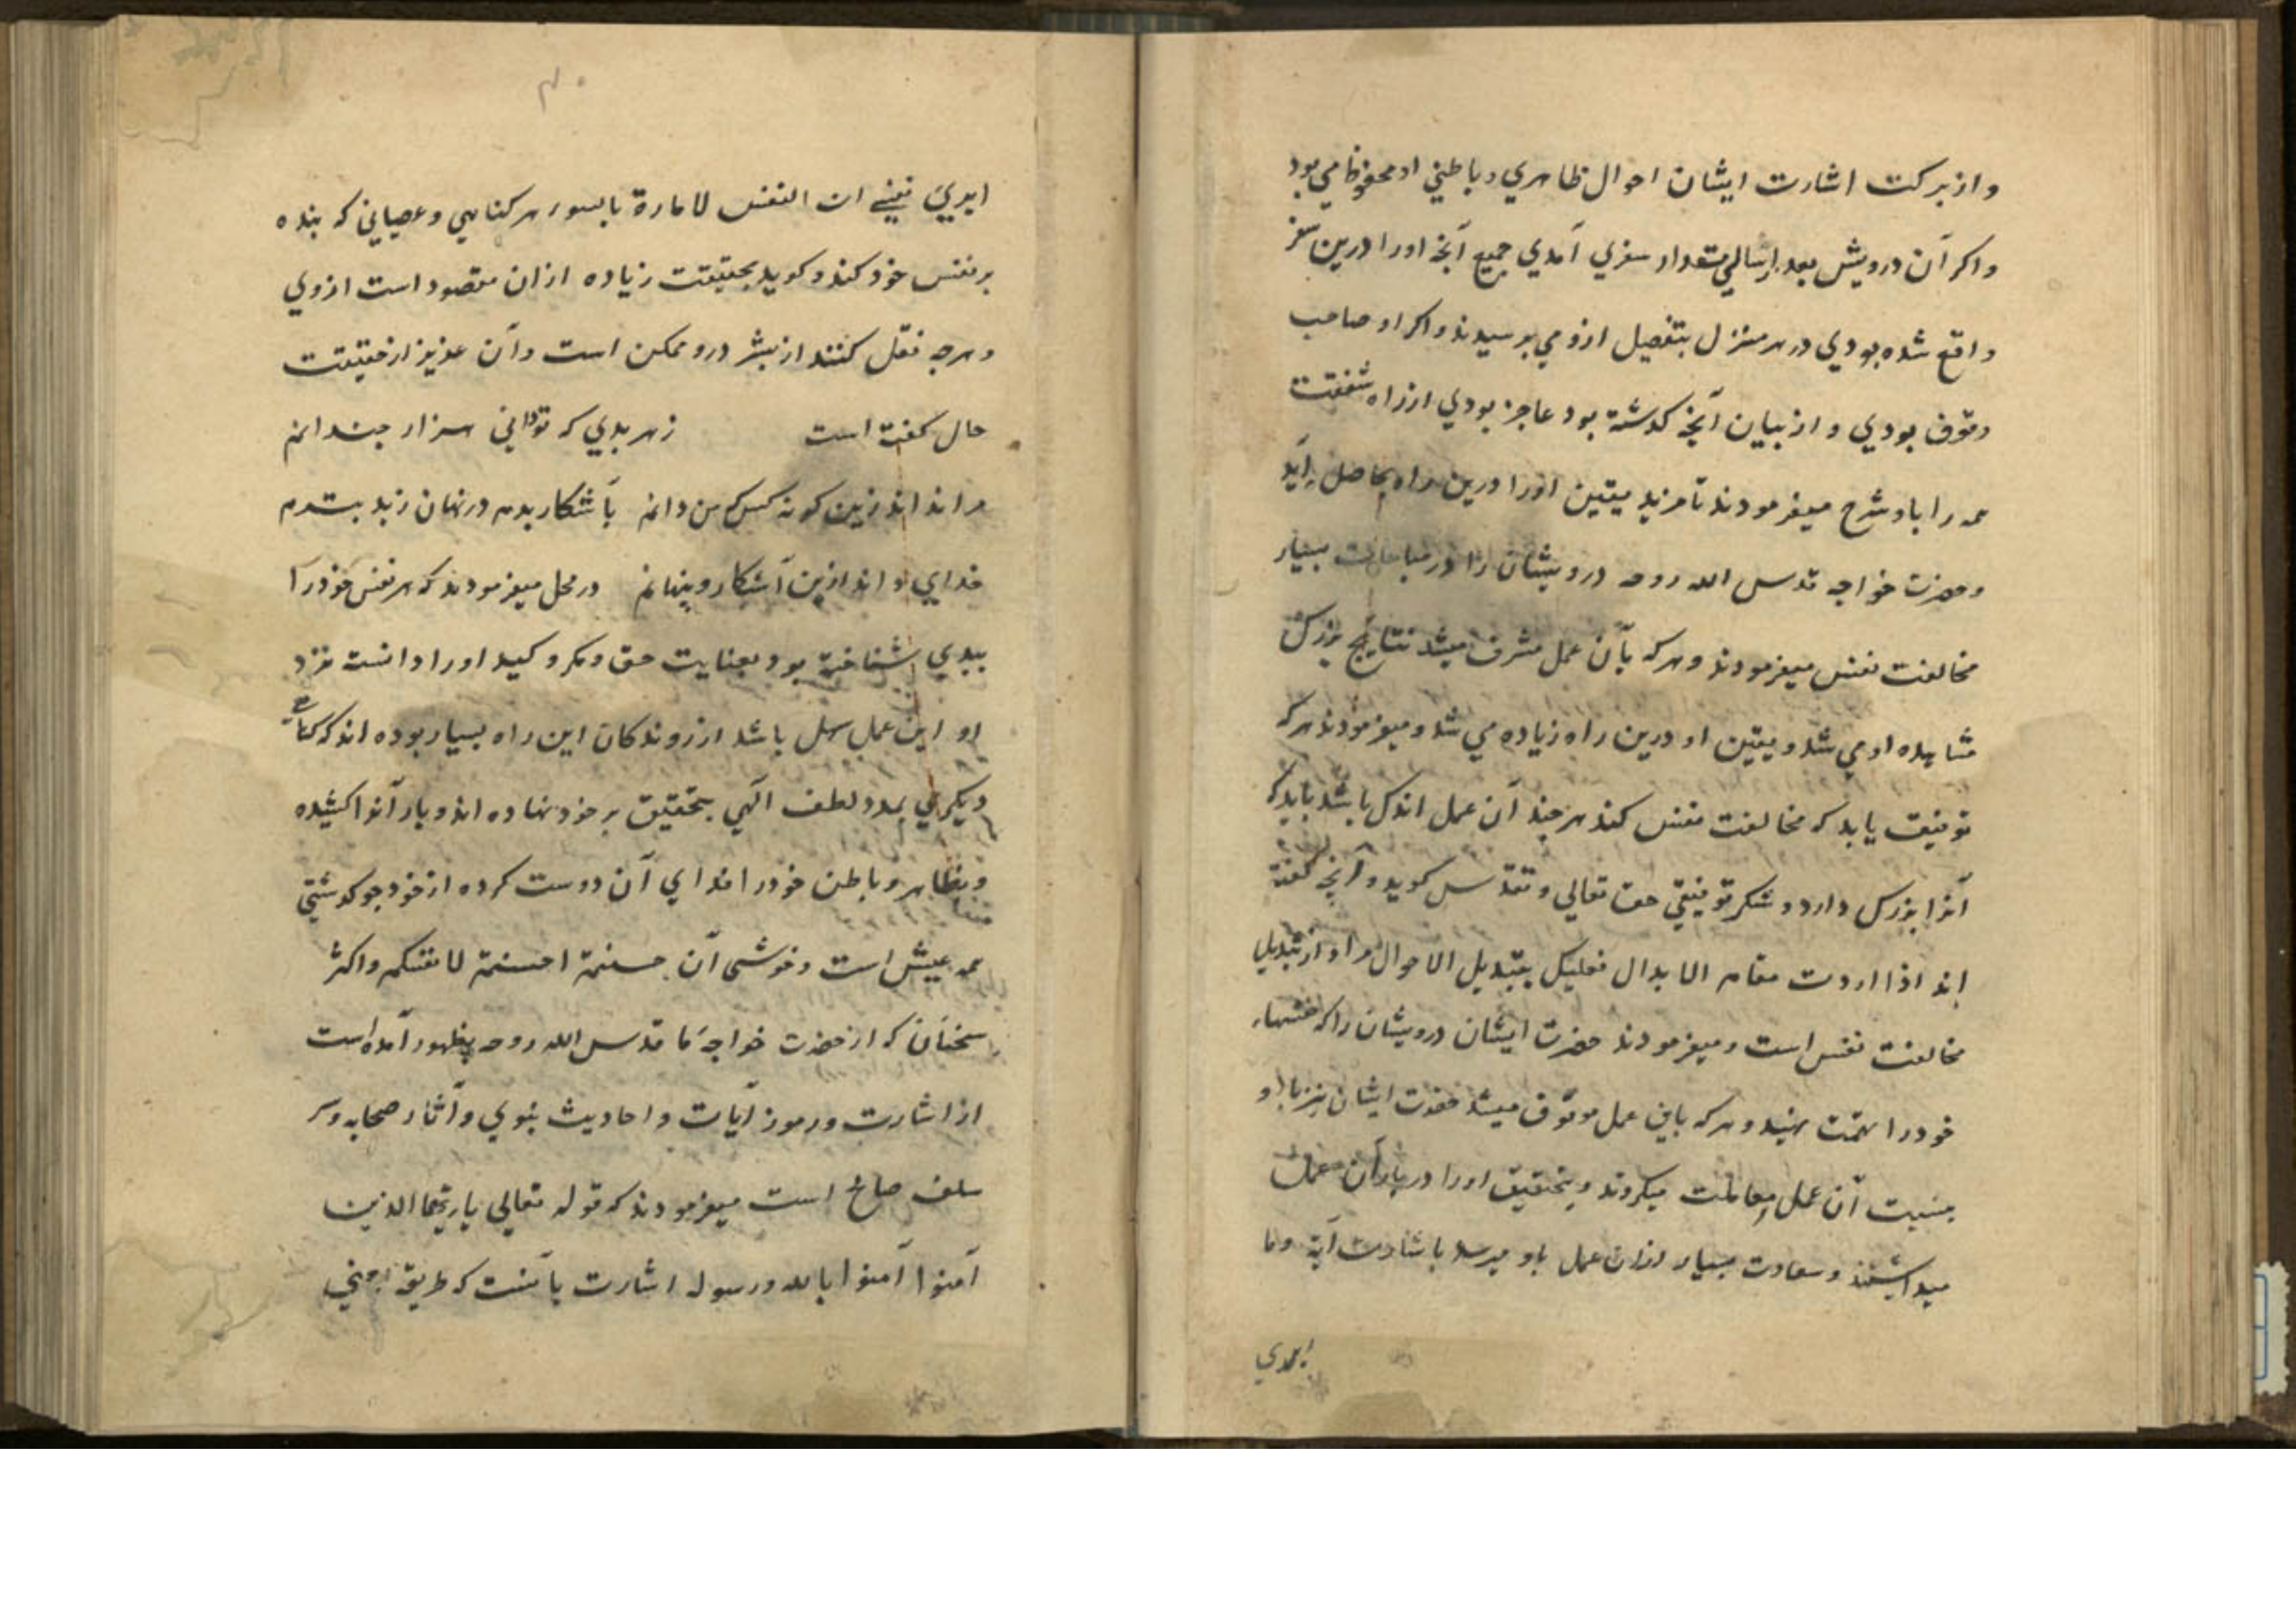 و از برکت اشارت ایشان احوال ظاهري و باطني او محفوظ مي بود
و اکر آن درویش بعد از سالي مقدار سفري آمدي جمیع آنچه او را درین سفر
واقع شده بودي در هر منزل بتفصیل ازو مي برسیدند و اکر او صاحب
وقوف بودي و از بیان آنچه کدشته بود عاجز بودي از راه شفقت
همه را باو شرح میفرمودند تا مزید یقین او را درین راه بحاصل آید
و حضرت خواجه قدس الله روحه درویشان را در مبسیار
مخالفت نفس میفرمودند و هر که بآن عمل مشرف میشد نتایج بزرک
مشاهده او مي شد و یقین او درین راه زیاده مي شد و میفرمودند هر که
توفیق یابد که مخالفت نفس کند هر چند آن عمل اندک باشد باید که
آنرا بزرک دارد و شکر توفیق حق تعالي و تقدس کوید و آنچه کفته
اند اذا اردت مقام الابدال فعلیک بتبدیل الاحوال مراد از تبدیل
مخالفت نفس است و میفرمودند حضرت ایشان درویشان را که نفسهاء
خود را تهمت نهید و هر که باین عمل موفق میشد حضرت ایشان نیز با او
بنسبت آن عمل معاملت میکردند و بتحقیق او را در بار آن عمل
میداشتند و سعادت بسیار ازان عمل باو میرسد باشارت آیة وما
ابري
ابريء نفسي ان النفس لامارة بالسوء هر کناهي و عصیاني که بنده
بر نفس خود کند و کوید بحقیقت زیاده ازان مقصود است ازوي
و هرجه نقل کنند از بشر درو ممکن است و آن عزیز از حقیقت
حال کفته است زهر بدي که تو داني هزار جندانم
مرا نداند زین کونه کس که من دانم بآشکار بدم در نهان ز بد بترم
خداي داند ازین آشکار و پنهانم در محل میفرمودند که هر نفس خود را
ببدي شناخته بود بعنایت حق و مکر و کید او را دانست نزد
او این عمل سهل باشد از روندکان این راه بسیار بوده اند که کناه
دیکري بمدد لطف الهي بتحقیق بر خود نهاده اند و بار آنرا کشیده
و بظاهر و باطن خود را فداي آن دوست کرده از خود جو کدشتي
همه عیش است و خوشي آن حسنتم احسنتم لانفسکم و اکثر
سخنان که از حضرت خواجه ما قدس الله روحه بظهور آمده است
از اشارت و رموز آیات و احادیث نبوي و آثار صحابه و سر
سلف صالح است میفرمودند که قوله تعالي یا ایها الذین
آمنوا آمنوا بالله و رسوله اشارت بآنست که طریق